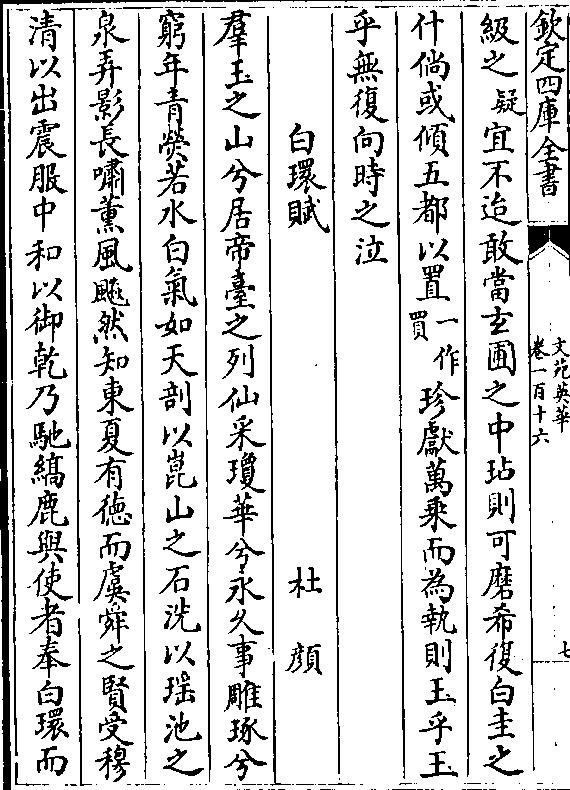 欽定四庫全書
文苑英華
卷一百十六
七
級之疑宜不迨敢當玄圃之中玷則可磨希復白圭之
什倘或傾五都以置一作買珍獻萬乘而為執則玉乎玉
乎無復向時之泣
白環賦
杜顔
羣玉之山兮居帝臺之列仙采瓊華兮永久事雕琢兮
窮年青熒若水白氣如天剖以崑山之石洗以瑶池之
泉弄影長嘯薰風颷然知東夏有德而虞舜之賢受穆
清以出震服中和以御乾乃馳縞鹿與使者奉白環而